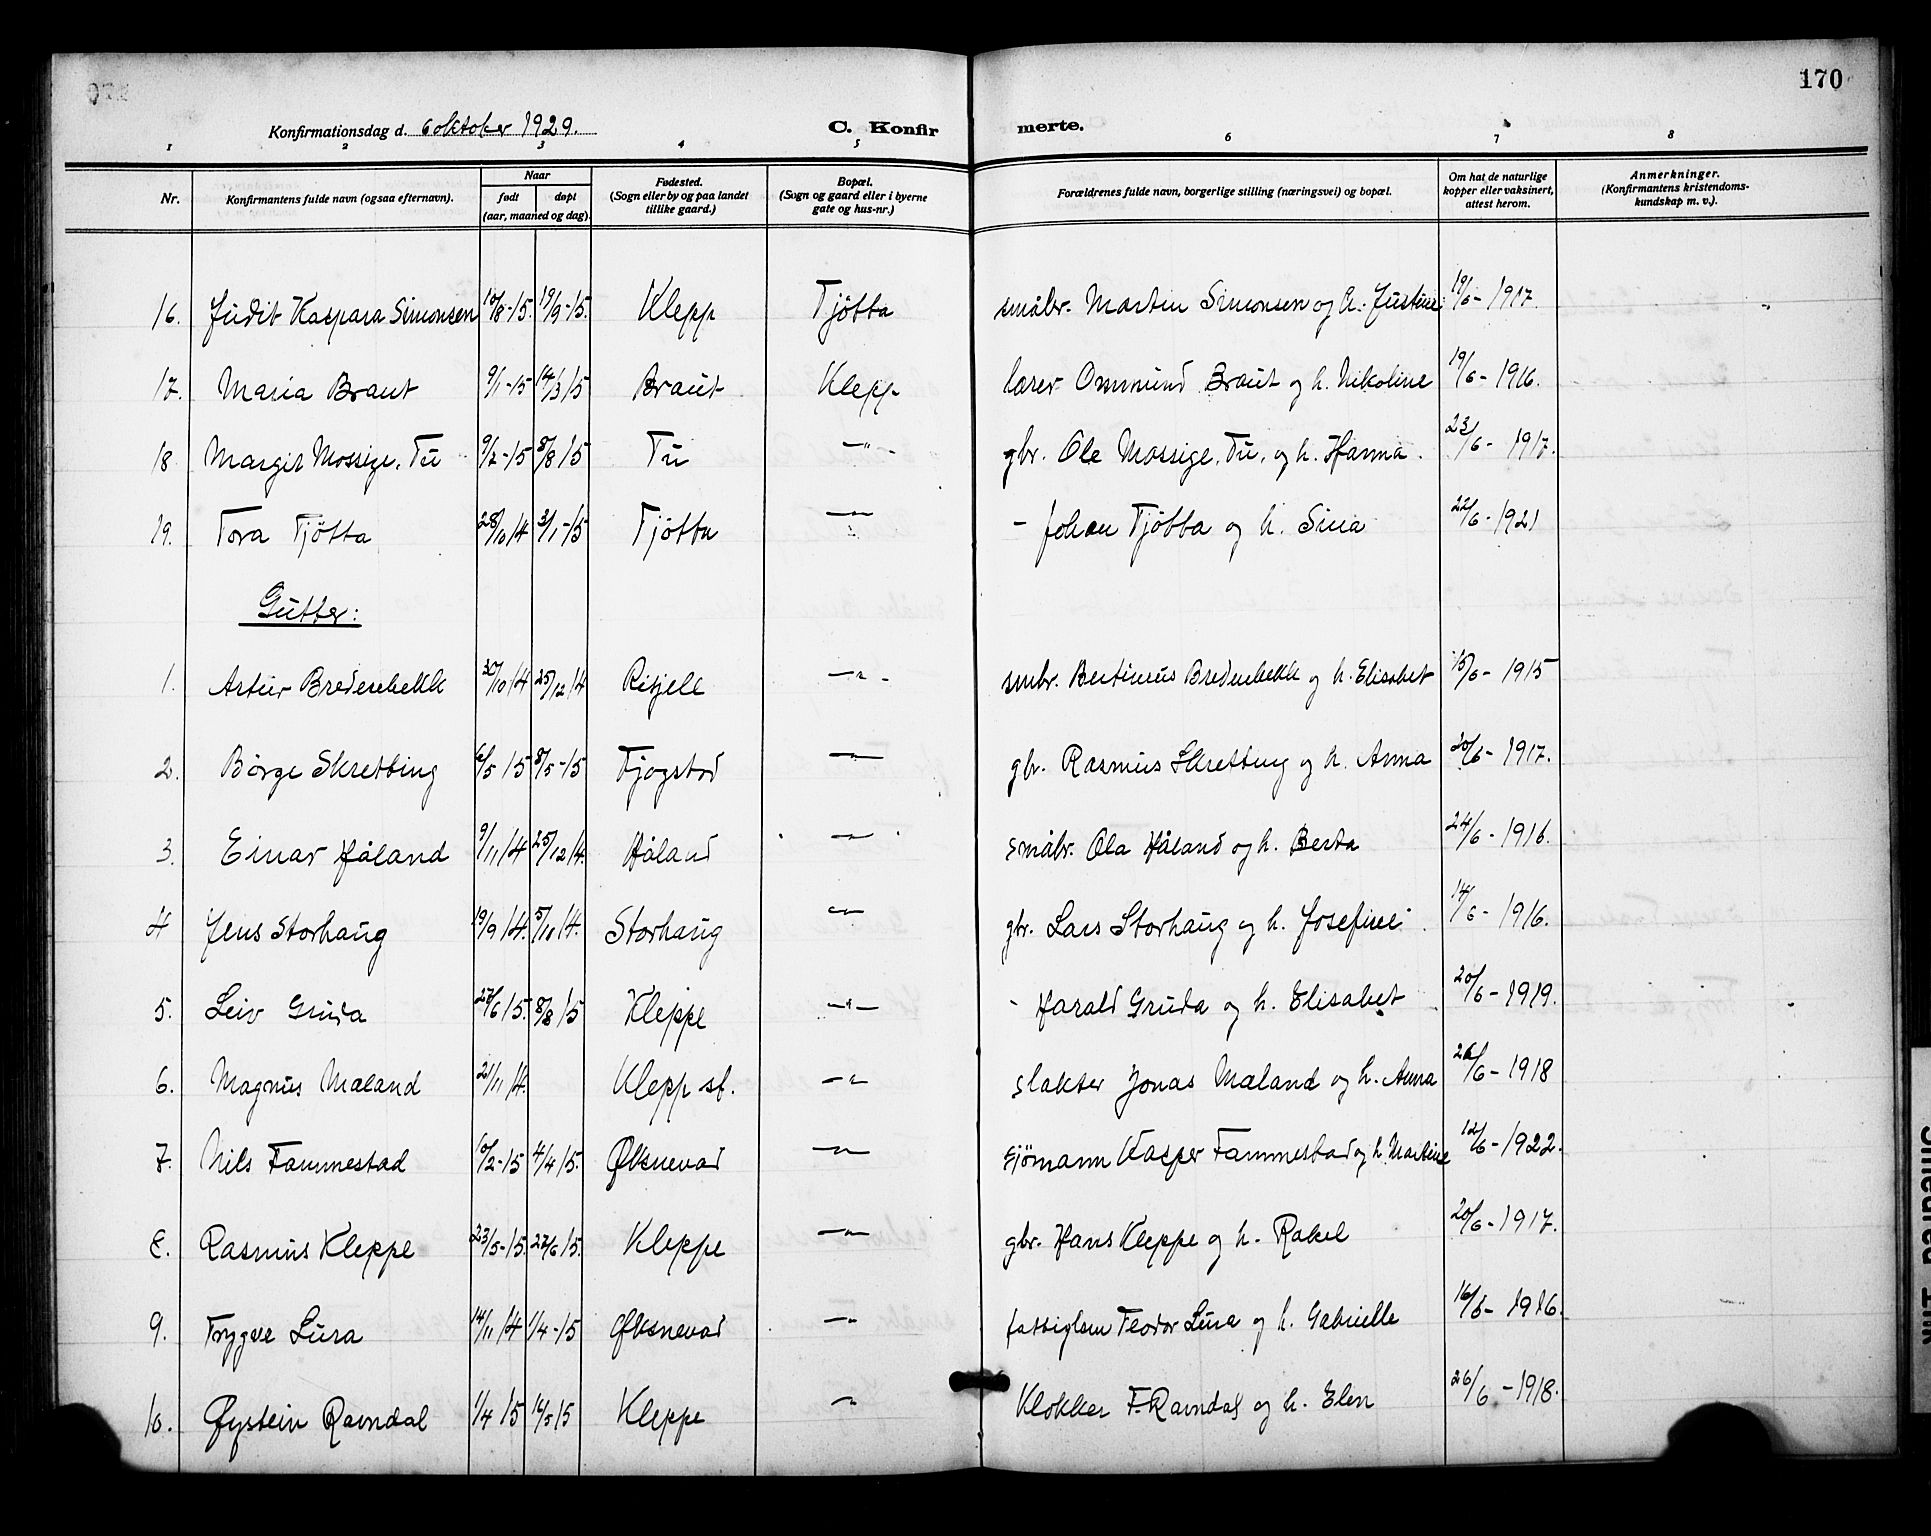 170
Konfirmationsdag d. 6 oktober 1929.
C. Konfirmerte.
1 2 3 4 5 6 7 8
Nr. Konfirmantens fulde navn (ogsaa efternavn). Naar født døpt (aar, maaned og dag). Fødested. (Sogn eller by og paa landet tillike gaard.) Bopæl. (Sogn og gaard eller i byerne gate og hus-nr.) Forældrenes fulde navn, borgerlige stilling (næringsvei) og bopæl. Om hat de naturlige kopper eller vaksinert, attest herom. Anmerkninger. (Konfirmantens kristendoms-kundskap m. v.).
16. Judit Kaspara Simonsen 10/8-15. 19/9-15. Klepp Tjøtta småbr. Martin Simonsen og h. Justine 19/6-1917.
17. Maria Braut 9/1-15 14/3 15 Braut Klepp lærer Ommund Braut og h. Nikoline 19/6-1916.
18 Margit Mossige, Tu 9/2-15 8/8 15 Tu -"- gbr. Ole Mossige, Tu, og h. Hanna. 23/6-1917.
19. Tora Tjøtta 28/10 14 3/1-15 Tjøtta -"- - Johan Tjøtta og h. Sina 22/6-1921
Gutter:
1. Artur Bredenbekk 30/10 14 25/12 14 -"- smbr. Bertinius Bredenbekk og h. Elisabet 15/6-1915
2. Børge Skretting 6/5 15 8/5-15 Tjøgstad -"- gbr. Rasmus Skretting og h. Anna 20/6-1917.
3. Einar Håland 9/11 14 25/12 14. Håland -"- småbr. Ola Håland og h. Berta 24/6-1916.
4 Jens Storhaug 19/9 14. 5/10 14. Storhaug -"- gbr. Lars Storhaug og h. Josefine 14/6-1916.
5. Leiv Gruda 27/6 15. 8/8 15 Kleppe -"- - Harald Gruda og h. Elisabet 20/6-1919.
6. Magnus Maland 2/11 14. Klepp st. -"- slakter Jonas Maland og h. Anna 26/6-1918
7. Nils Tammestad 10/2-15 4/4 15. Øksnevad -"- sjømann Kasper Tammestad og h. Martine 12/6-1922.
8. Rasmus Kleppe 23/5-15. 27/6 15. Kleppe -"- gbr. Hans Kleppe og h. Rakel 20/6-1917.
9. Trygve Lura 14/11 14 1/4-15 Øksnevad -"- fattiglem Teodor Lura og h. Gabrielle 16/6-1916.
10. Øystein Ravndal 1/4 15 14/5 15 Kleppe " Klokker F. Ravndal og h. Elen 26/6-1918.